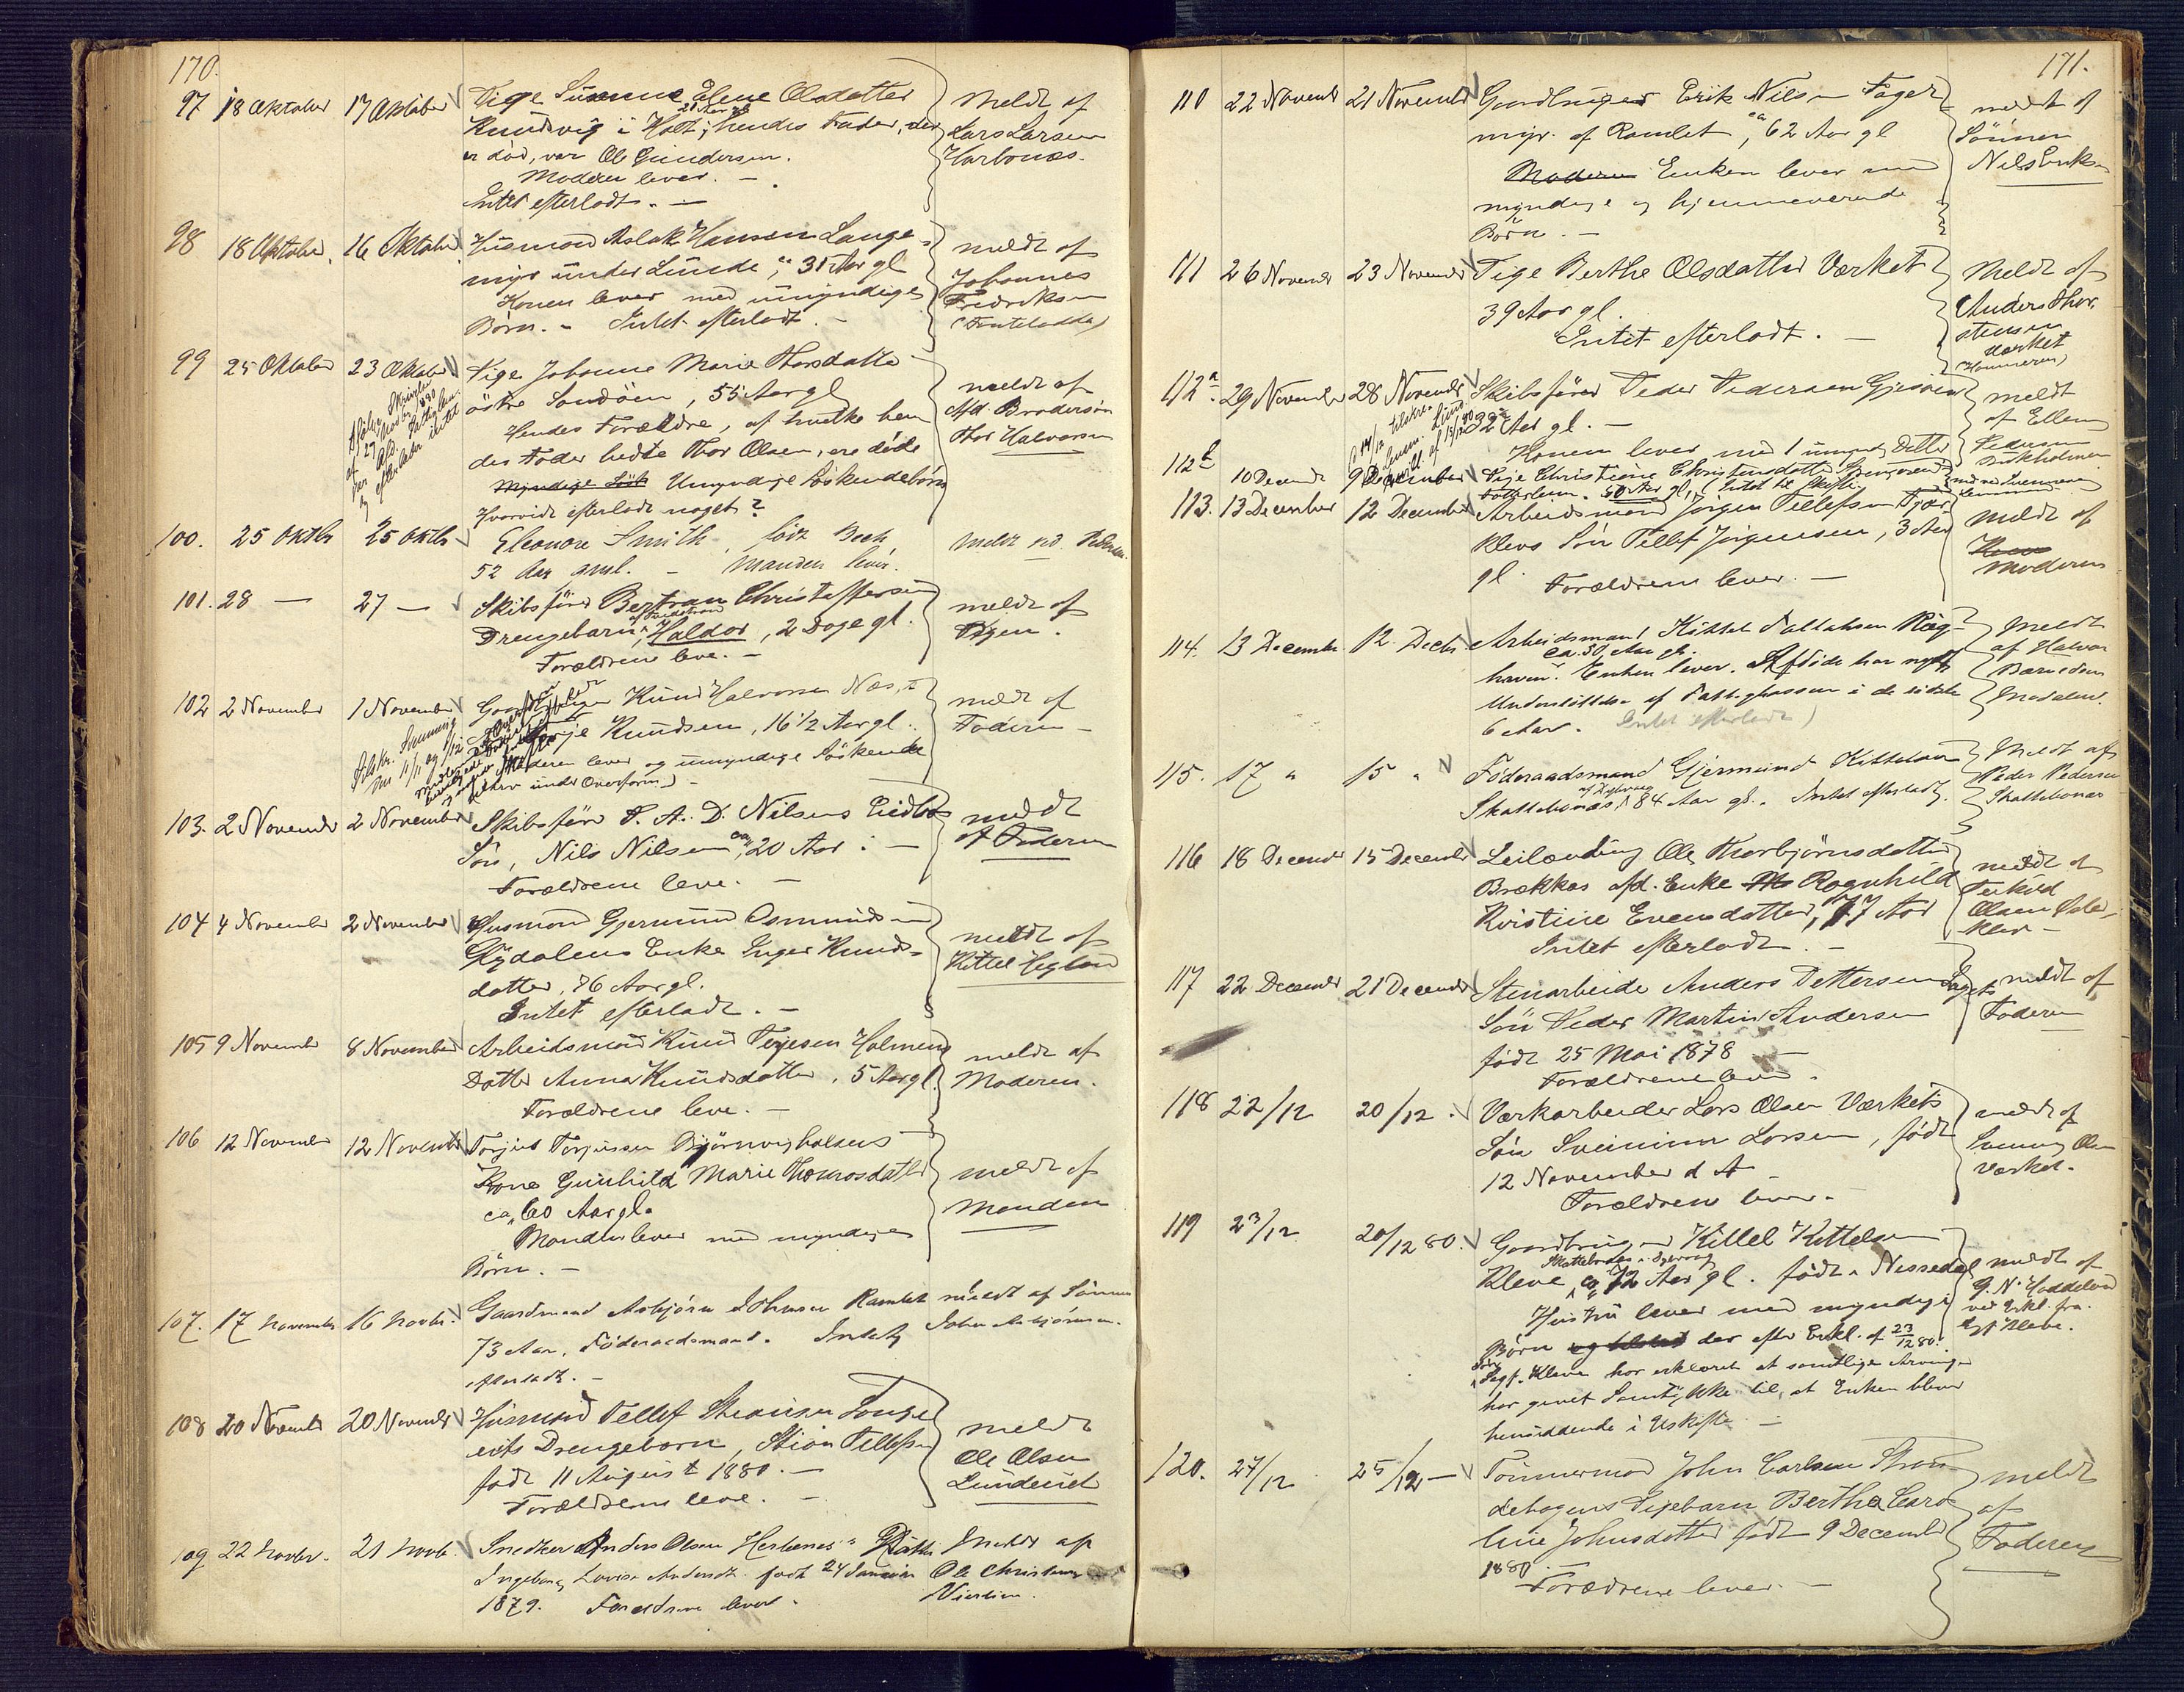 170.
97 18 Oktober 17 Oktober Pige Susanne Elene Olsdatter
21 Aar gl
Knudsvig i Holt; hendes Fader, der
er død, var Ole Gundersen.
Moderen lever. —
Intet efterladt. —
Meldt af
Lars Larsen
Harbonæs.
98 18 Oktober. 16 Oktober Husmand Aslak Hansen Lange-
myr under Lunde, ca 31 Aar gl
Konen lever med umyndige
Børn. — Intet efterladt. —
meldt af
Johannes
Fredriksen
99 25 Oktober 23 Oktober Pige Johanne Marie Thorsdatter
østre Sandøen, 55 Aar gl
Hendes Forældre, af hvilke hen
des Fader hedte Thor Olsen, ere døde
Myndige Umyndige Søskendebørn
Hvorvidt efterladt noget?
meldt af
Thor Halvorsen
100. 25 Oktbr 25 Oktbr Eleonore Smith, født Bech
52 Aar gml. — Manden lever.
Meldt
101. 28 — 27 — Skibsfører Bertran Christoffersen
Drengebarn, Haldor, 2 Dage gl.
Forældrene leve. —
meldt af
102 2 November 1 November Knud Halvorsen Næs,
Terje Knudsen, 16 1/2 Aar gl.
Moderen lever og umyndige Søskende
under Overform.) —
meldt af
Faderen —
103. 2 November 2 November Skibsfører S. A. D. Nilsens Eidbo
Søn, Nils Nilsen, ca 20 Aar. —
Forældrene leve. —
meldt
af Faderen
104 4 November 2 November Husmand Gjermund Osmundsen
Enke Inger Knuds-
datter, 76 Aar gl.
Intet efterladt. —
meldt af
Kittel
105 9 November 8 November Arbeidsmand Knud Terjesen Holmens
Datter Anna Knudsdatter, 5 Aar gl.
Forældrene leve. —
meldt af
Moderen.
106 12 November 12 November Torjus Torjussen Bjørnvigholsens
Kone Gunhild Marie Thomasdatter
ca 60 Aar gl.
Manden lever med myndige
Børn. —
meldt af
Manden
107. 17 November 16 Novbr. Gaardmand Asbjørn Johnsen Ramlet
73 Aar, Føderaadsmand. Intet
efterladt. —
meldt af Sønnen
John Asbjørnsen.
108 20 November 20 November Husmand Tellef Stiansen Songe
eiets Drengebarn, Stian Tellefsen
født 11 August 1880. —
Forældrene leve. —
meldt
Ole Olsen
Lundeeiet
109 22 Novbr. 21 Novb. Snedker Anders Olsen Herbenes's Datter
Ingeborg Lovise Andersdt. født 24 Januar
1879. Forældrene lever.
Meldt af
Ole Christensen
171.
110 22 November 21 November Gaardbruger Erik Nilsen Fager
myr. af Ramlet, ca 62 Aar gl
Moderen Enken lever med
myndige og hjemmeværende
Børn. —
meldt af
Sønnen
Nils Eriksen
111 26 November 23 November Pige Berthe Olsdatter Værket
39 Aar gl.
Intet efterladt. —
Meldt af
Anders Thor-
stensen
Værket
112a. 29 November 28 November Skibsfører Peder Pedersen
32 Aar gl. —
Konen lever med 1 umynd. Datter
meldt
af Ellen
Pedersen
112b 10 Decembr 9 December Pige Christine Christensdatter
50 Aar gl., Intet til Skifte.
113. 13 December 12 December Arbeidsmand Jørgen Tellefsen Fjær
klevs Søn Tellef Jørgensen, 3 Aar
gl. Forældrene lever. —
meldt af
Moderen
114. 13 Decembr. 12. Decbr. Arbeidsmand Kittel Tallaksen
ca. 50 Aar gl.
Enken lever. Afdøde har nydt
Understøttelse af Fattigkassen i de sidste
6 Aar. Intet efterladt)
Meldt
af Halvor
115. 17 " 15 " Føderaadsmand Gjermund Kittelsen
Skattebonæs, 84 Aar gl. Intet efterladt.
Meldt af
Peder Pedersen
Skattebonæs
116 18 December 15 December Leilænding Ole Thorbjørnsdatter
Brækkas afd. Enke Ragnhild
Kristine Evensdatter, 77 Aar
Intet efterladt. —
meldt af
Terkild
Olsen
117 22 December 21 December Stenarbeider Anders Pettersen
Søn Peder Martin Andersen
født 25 Mai 1878 —
Forældrene lever.
meldt af
Faderen
118 22/12 20/12. Værkarbeider Lars Olsen Værkets
Søn Sveinung Larsen, født
12 November d A —
Forældrene lever. —
meldt af
Svenung Olsen
Værket.
119 23/12 20/12 80. Gaardbruger Kittel Kittelsen
Kleve, ca 72 Aar gl. født i Nissedal
Hustru lever med myndige
Børn og der efter Erkl. af 23/12 80.
Kleve har erklæret at samtlige Arvinger
har givet Samtykke til, at Enken bliver
hensiddende i Uskifte. —
meldt af
G. N.
ved Erkl. fra
Kleve.
120. 27/12 25/12 — Tømmermand John Carlsen Stran-
dehagens Pigebarn Berthe Caro
line Johnsdatter født 9 December
1880.
Forældrene lever. —
meldt
af
Faderen